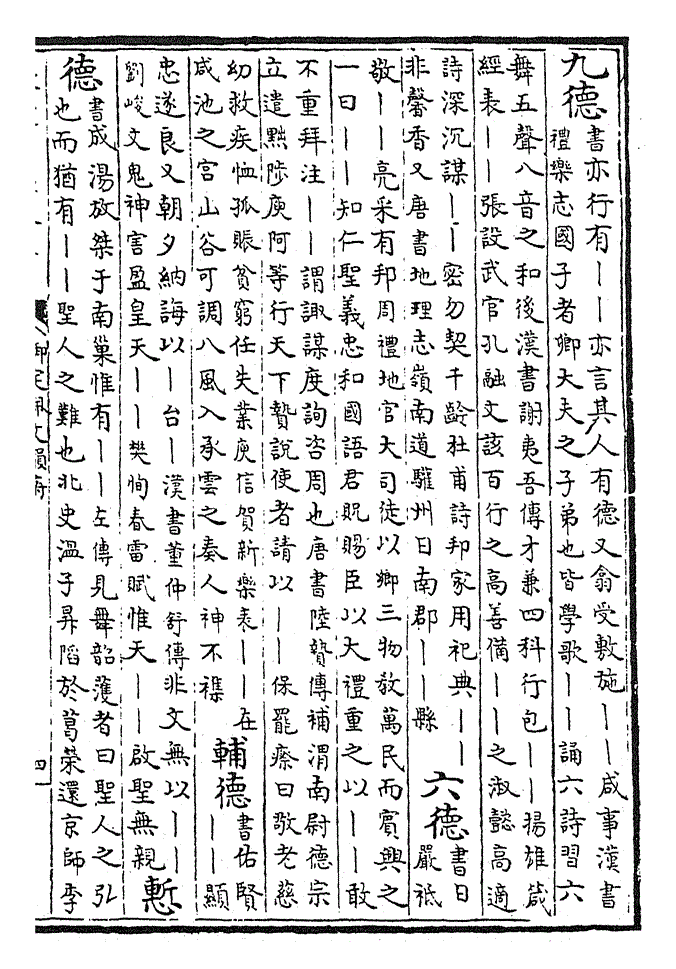 九德書亦行有丨丨亦言其人有德又翕受敷施丨丨咸事漢書
禮樂志國子者卿大夫之子弟也皆學歌丨丨誦六詩習六
舞五聲八音之和後漢書謝夷吾傳才兼四科行包丨丨揚雄箴
經表丨丨張設武官孔融文該百行之高善備丨丨之淑懿高適
詩深沉謀丨丨密勿契千齡杜甫詩邦家用祀典丨丨
非馨香又唐書地理志嶺南道驩州日南郡丨丨縣
六德書日
嚴祗
敬丨丨亮采有邦周禮地官大司徒以鄉三物教萬民而賓興之
一曰丨丨知仁聖義忠和國語君貺賜臣以大禮重之以丨丨敢
不重拜注丨丨謂諏謀度詢咨周也唐書陸贄傳補渭南尉德宗
立遣黜陟庾阿等行天下贄說使者請以丨丨保罷瘵曰敬老慈
幼救疾恤孤賑貧窮任失業庾信賀新樂表丨丨在
咸池之宮山谷可調八風入承雲之奏人神不襍
輔德書佑賢
丨丨顯
忠遂良又朝夕納誨以丨台丨漢書董仲舒傳非文無以丨丨
劉峻文鬼神害盈皇天丨丨樊恂春雷賦惟天丨丨啟聖無親
慙
德書成湯放桀于南巢惟有丨丨左傳見舞韶濩者曰聖人之弘
也而猶有丨丨聖人之難也北史溫子昇陷於葛榮還京師李
御定佩文韻府